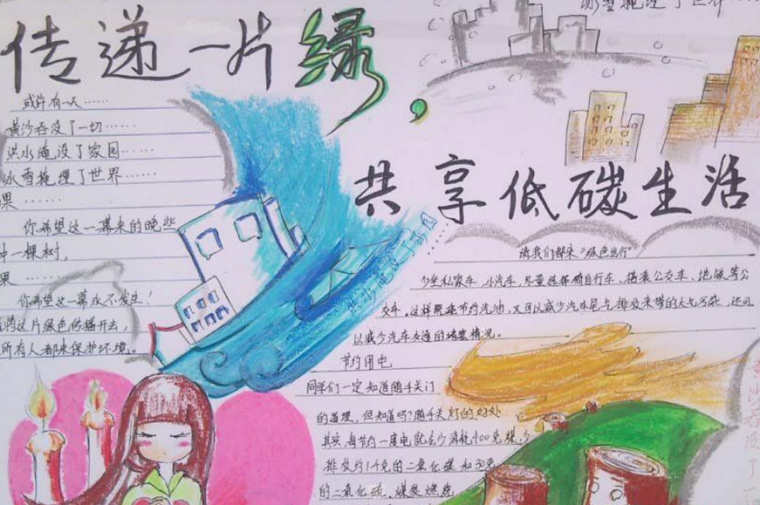 传递一片绿，
共享低碳生活
或许有一天……
黄沙吞没了一切……
洪水淹没了家园…
冰雪掩埋了世界……
果……
你希望这一幕来的晚些
种一棵树，
果……
你希望这一幕永不发生！
将这片绿色传播开去，
所有人都来保护环境。
冰雪掩埋了世界
洪水淹没了家园
让我们都来“绿色出行”
少坐私家车、小汽车，尽量选择骑自行车、搭乘公交车、地铁等公
交车，这样既能节约汽油，又可以减少汽车尾气排放来带的大气污染，还可
以减少汽车友造的堵塞情况。
节约用电
同学们一定知道随手关门
的道理，但知道吗？随手关灯的好处
其实，每节约一度电就会少消耗400克煤，少
排放约1千克的二氧化碳和30克
的二氧化硫，煤炭燃烧